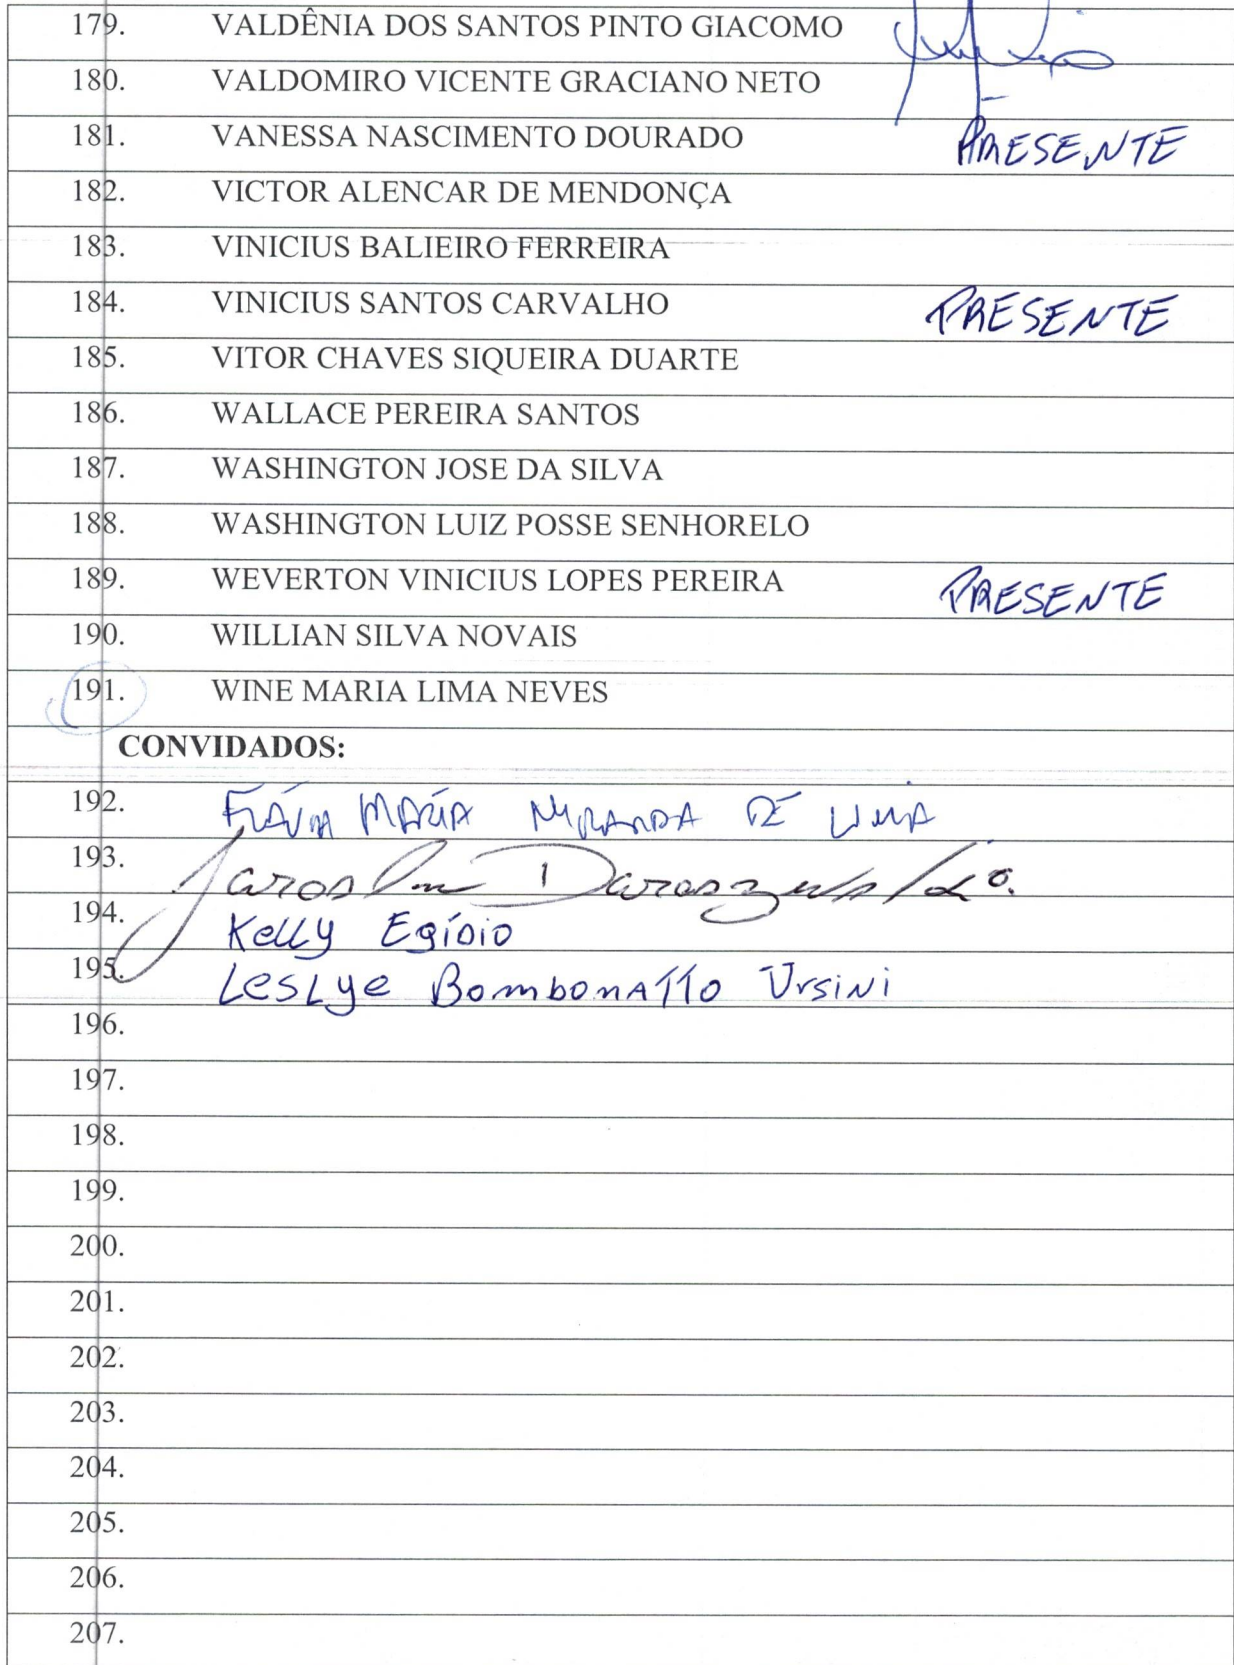 179. VALDÊNIA DOS SANTOS PINTO GIACOMO
180. VALDOMIRO VICENTE GRACIANO NETO
181. VANESSA NASCIMENTO DOURADO PRESENTE
182. VICTOR ALENCAR DE MENDONÇA
183. VINICIUS BALIEIRO FERREIRA
184. VINICIUS SANTOS CARVALHO PRESENTE
185. VITOR CHAVES SIQUEIRA DUARTE
186. WALLACE PEREIRA SANTOS
187. WASHINGTON JOSE DA SILVA
188. WASHINGTON LUIZ POSSE SENHORELO
189. WEVERTON VINICIUS LOPES PEREIRA PRESENTE
190. WILLIAN SILVA NOVAIS
191. WINE MARIA LIMA NEVES
CONVIDADOS:
192. FLÁVIA MARIA MIRANDA DE LIMA
193.
194. Kelly Egídio
195. Leslye Bombonatto Ursini
196.
197.
198.
199.
200.
201.
202.
203.
204.
205.
206.
207.